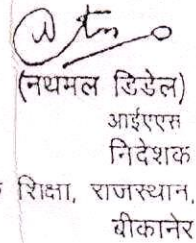 (नथमल डिडेल)
आईएएस
निदेशक
शिक्षा, राजस्थान,
बीकानेर